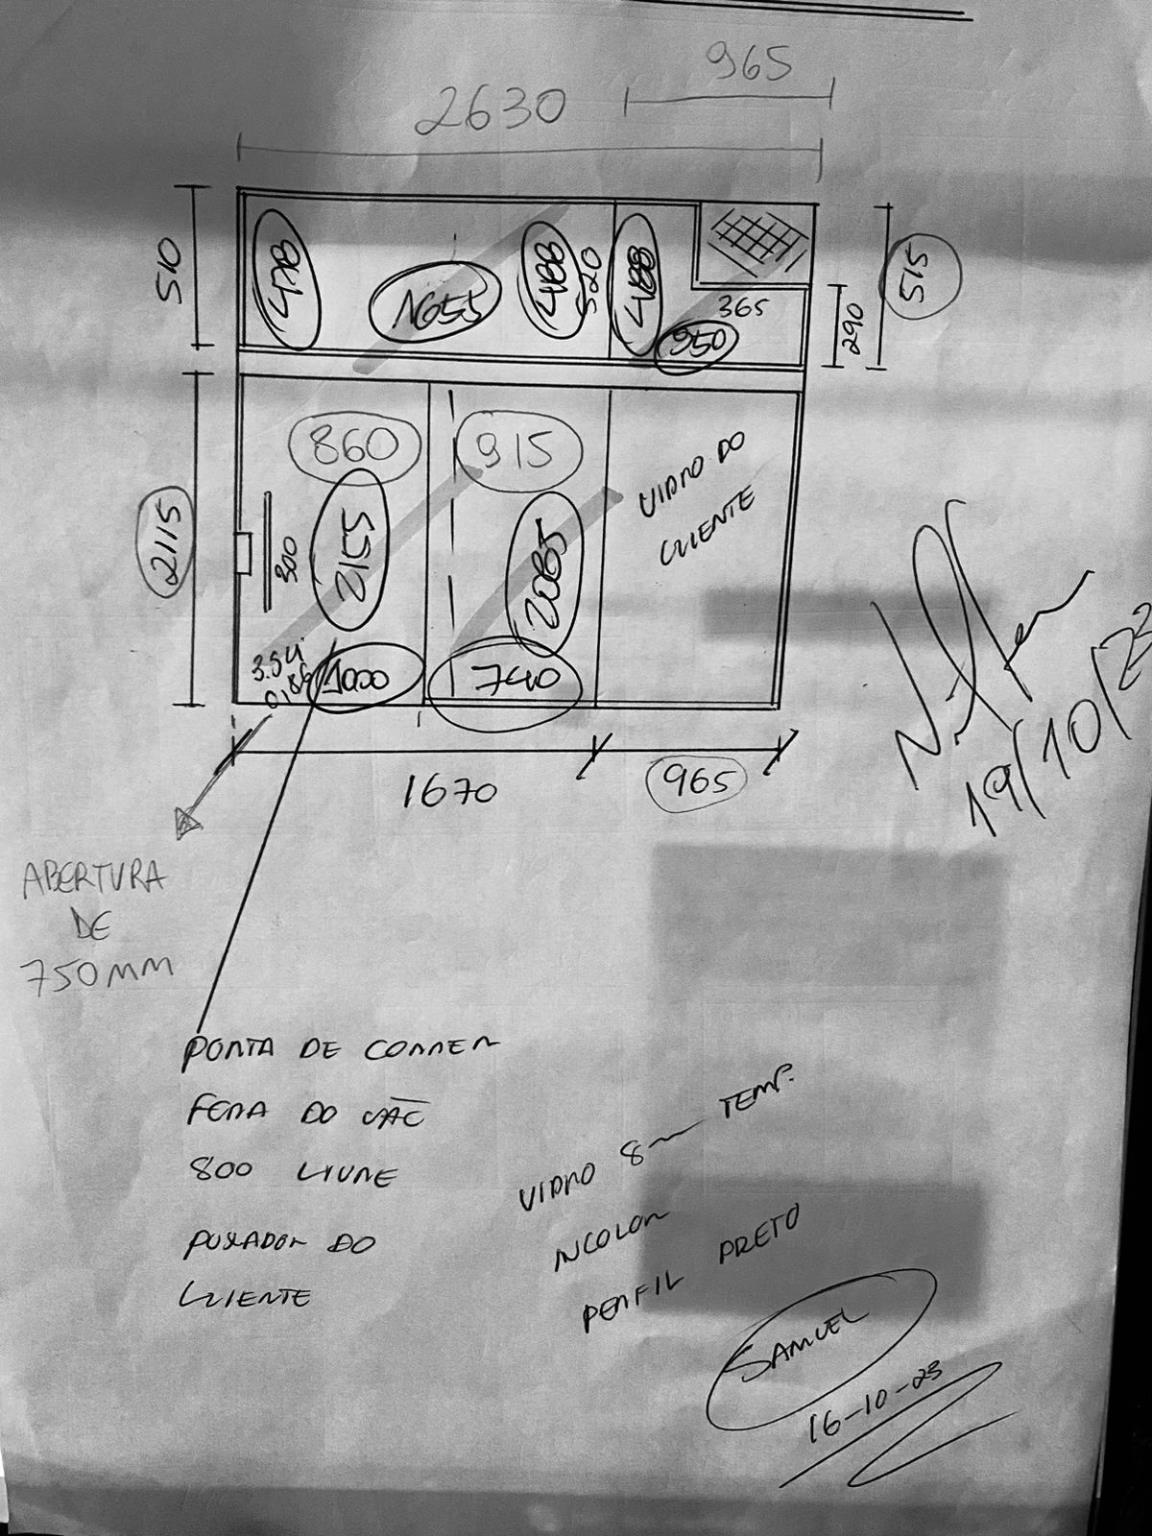 965
2630
510
478
1655
488
520
488
950
365
290
515
860
915
2115
300
2155
2085
VIDRO DO
CLIENTE
1000
740
1670
965
19/10/23
ABERTURA
DE
750MM
PORTA DE CORRER
FORA DO VÃO
800 LIVRE
PUXADOR DO
CLIENTE
VIDRO 8 TEMP.
INCOLOR
PERFIL PRETO
SAMUEL
16-10-23